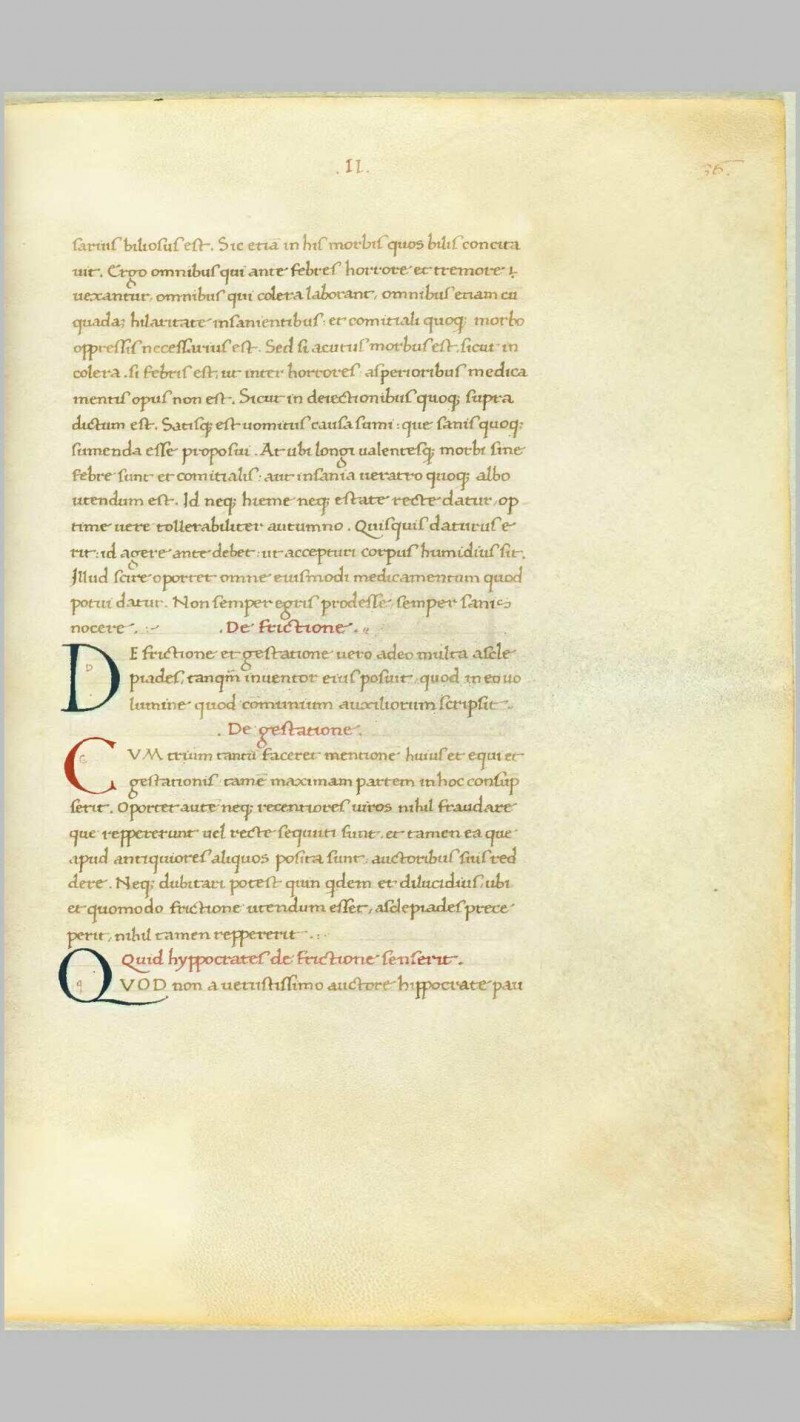 .II. 36.
sariuſ bilioſuſ eſt. Sic etiā in hiſ morbiſ quos biliſ concita
uit. Ergo omnibuſ qui ante febreſ horrore et tremore
uexantur, omnibuſ qui colera laborant, omnibuſ etiam cū
quadaꝫ hilaritate inſanientibuſ: et comitiali quoqꝫ morbo
oppreſſiſ neceſſariuſ eſt. Sed ſi acutuſ morbuſ eſt, ſicut in
colera. ſi febriſ eſt, ut inter horroreſ aſperioribuſ medica
mentiſ opuſ non eſt. Sicut in deiectionibuſ quoqꝫ ſupra
dictum eſt. Satiſqꝫ eſt uomituſ cauſa ſumi: que ſaniſ quoqꝫ
ſumenda eſſe propoſui. At ubi longi ualenteſqꝫ morbi ſine
febre ſunt et comitialiſ: aut inſania ueratro quoqꝫ albo
utendum eſt. Id neqꝫ hieme neqꝫ eſtate recte datur, op
time uere tollerabiliter autumno. Quiſquiſ daturuſ e
rit: id agere ante debet: ut accepturi corpuſ humidiuſ ſit.
Illud ſcire oportet omne eiuſmodi medicamentum quod
potui datur. Non ſemper egriſ prodeſſe ſemper ſaniſ
nocere. .De frictione.
D
DE frictione et geſtatione uero adeo multa aſcle
piadeſ, tanqm̄ inuentor eiuſ poſuit, quod in eo uo
lumine quod comunium auxiliorum ſcripſit.
. De geſtatione.
c
CVM trium tantū faceret mentione huiuſ et equi et
geſtationiſ tamē maximam partem in hoc conſup
ſerit. Oportet autē neqꝫ recentioreſ uiros nihil fraudare
que reppererunt uel recte ſequuti ſunt, et tamen ea que
apud antiquioreſ aliquos poſita ſunt, auctoribuſ ſuiſ red
dere. Neqꝫ dubitari poteſt quin qdem et dilucidiuſ, ubi
et quomodo frictione utendum eſſet, aſclepiadeſ prece
perit, nihil tamen reppererit.
Quid hyppocrateſ de frictione ſenſerit.
q
QVOD non a uetuſtiſſimo auctore hippocrate pau